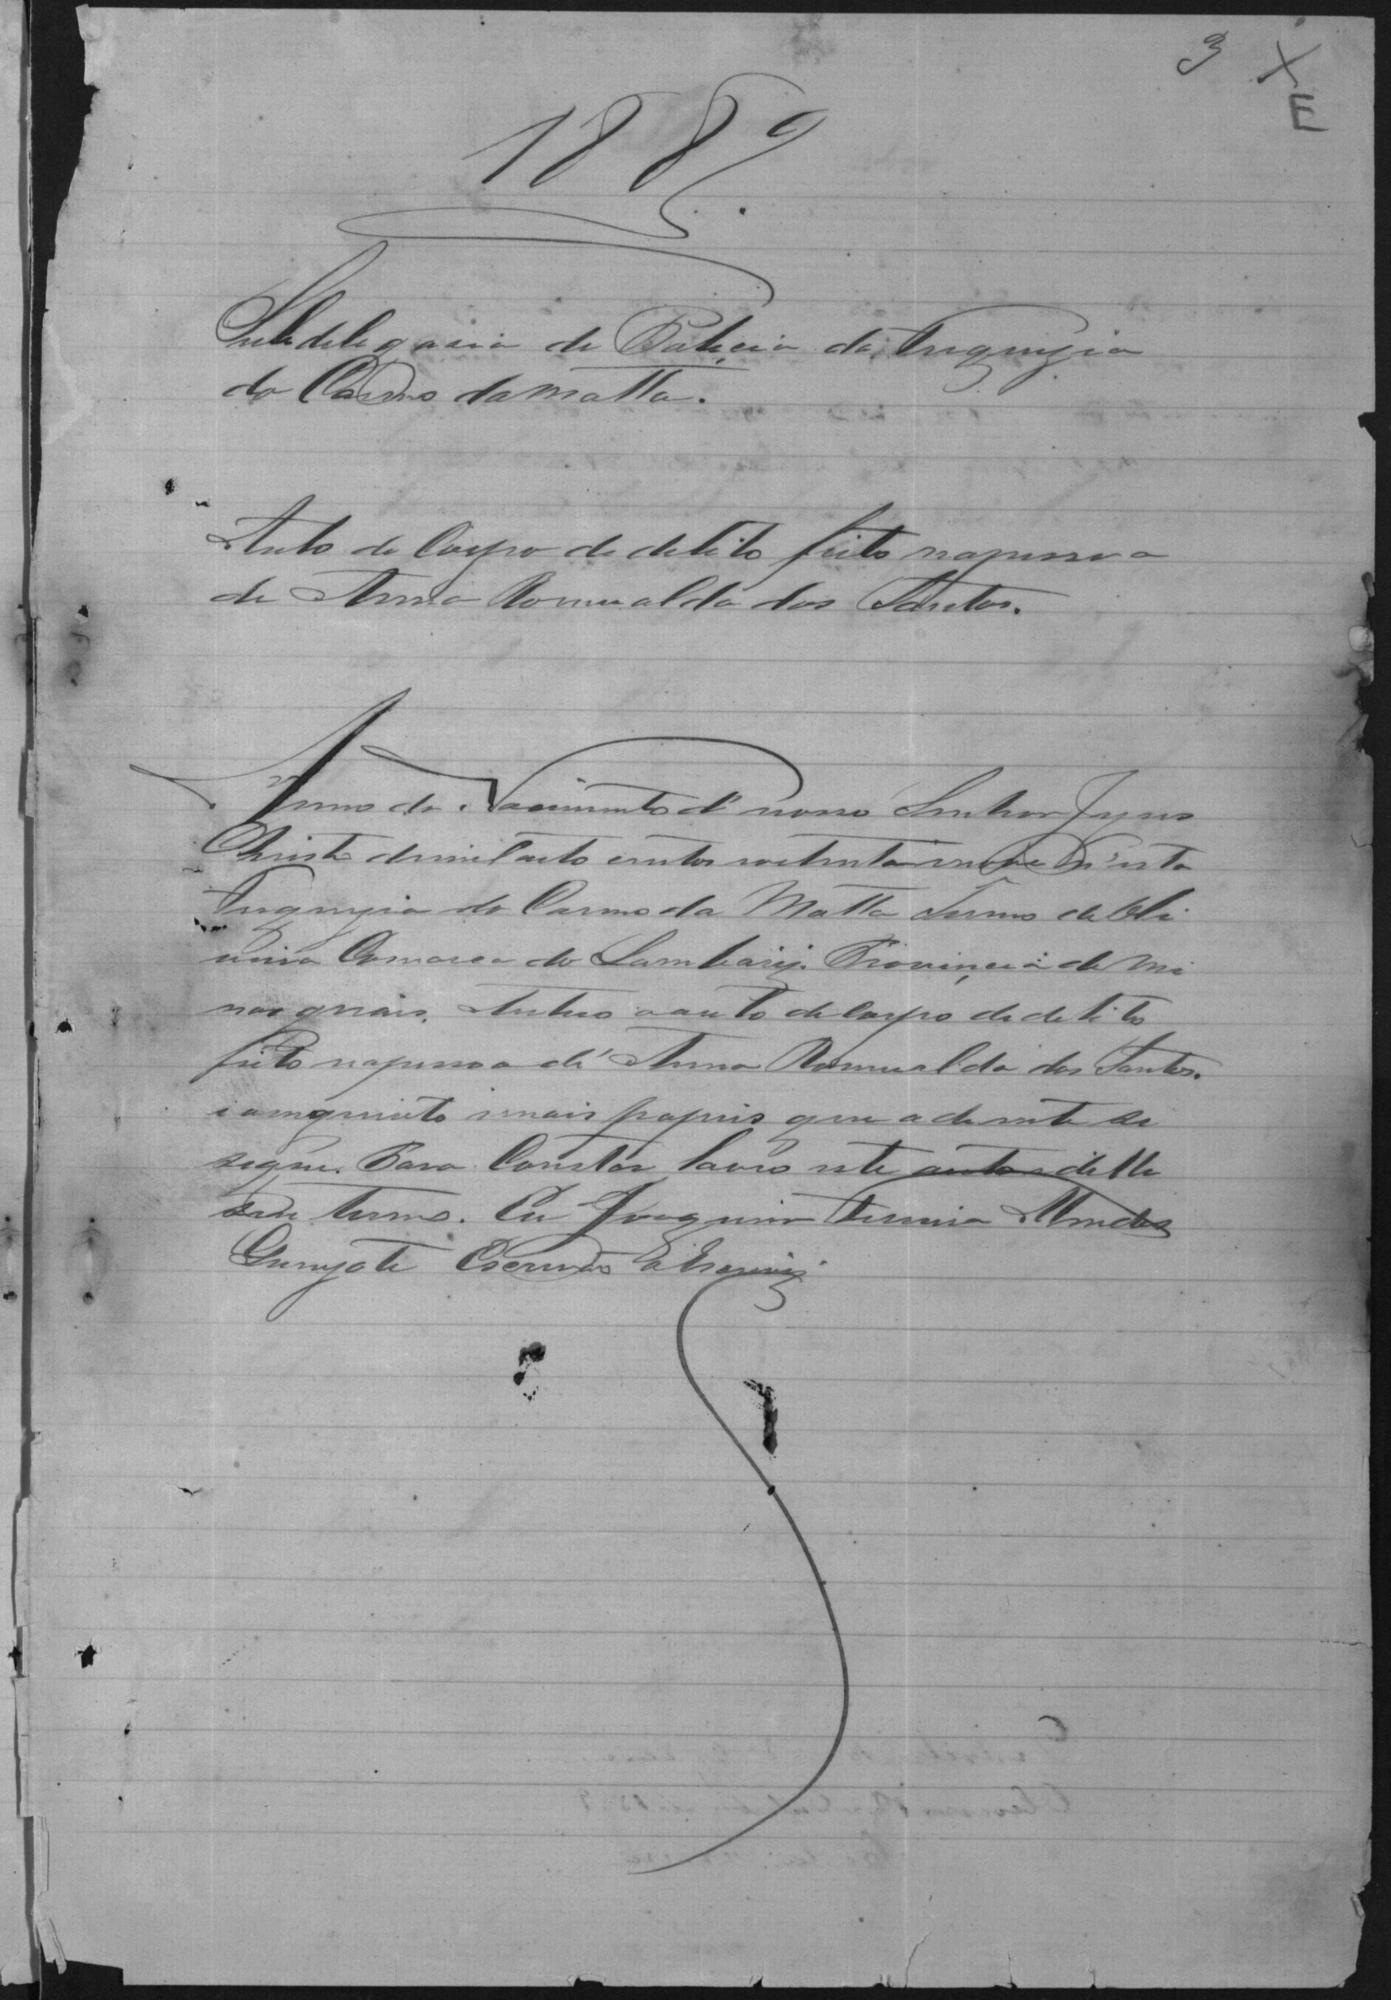 3 X
E
1889
Subdelegacia de Policia da Freguezia
do Carmo da Matta.
Auto de Corpo de delito feito napessoa
de Anna Romualda dos Santos.
Anno do Nascimento d' nosso Senhor Jesus
Christo demil oito centos eoitenta enove N'esta
Freguezia do Carmo da Matta Termo de Oli
veira Comarca do Lambary. Provincia de Mi
nas geraes. Autuo oauto de Corpo de delito
feito napessoa d' Anna Romualda dos Santos.
emais papeis que adeante se
segue. Para Constar lavro este auto delle
termo. Eu Joaquim Mendes
Escrivão